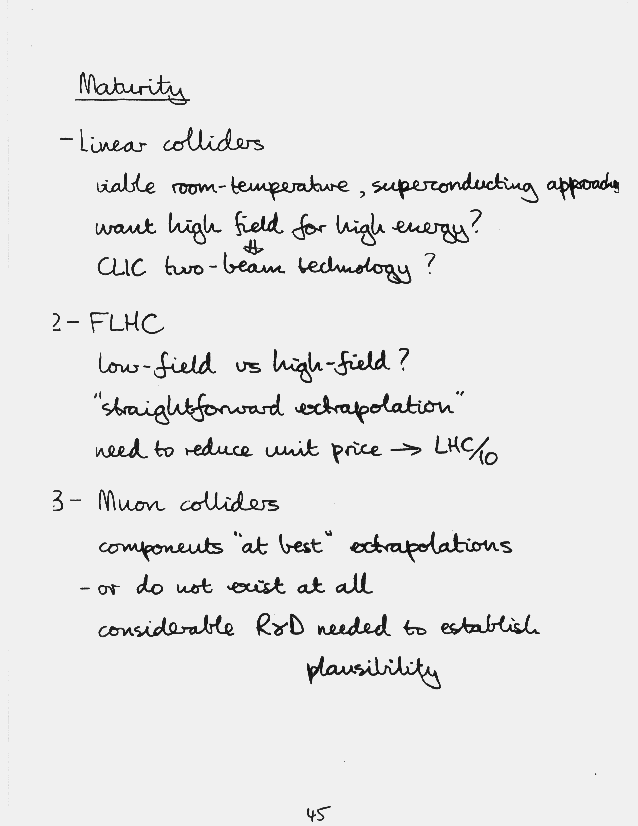 Maturity
- Linear colliders
viable room-temperature, superconducting approaches
want high field for high energy?
⇓
CLIC two-beam technology ?
2 - FLHC
low-field vs high-field ?
"straightforward extrapolation"
need to reduce unit price → LHC/10
3 - Muon colliders
components "at best" extrapolations
- or do not exist at all
considerable R&D needed to establish
plausibility
45